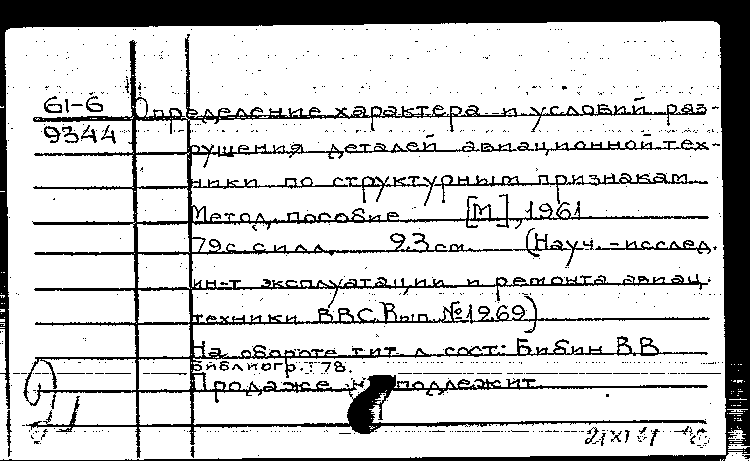 61-6 Определение характера и условий раз-
9344 рушения деталей авиационной тех-
ники по структурным признакам
Метод. пособие [М], 1961
79 с с илл. 23 см. (Науч.-исслед.
ин-т эксплуатации и ремонта авиац.
техники ВВС. Вып №1269)
На обороте тит. л сост: Бибин В.В
Библиогр.: 78.
Продаже не подлежит
21 XI 61